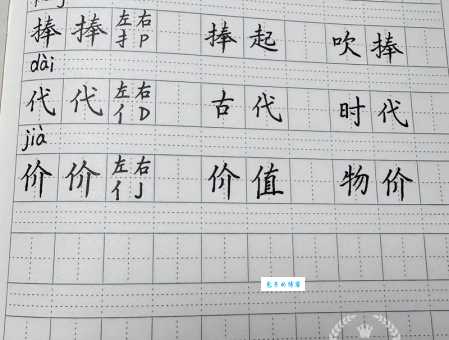 捧 捧 左右 扌P 捧起 吹捧
dài
代 代 左右 亻D 古代 时代
jià
价 价 左右 亻J 价值 物价